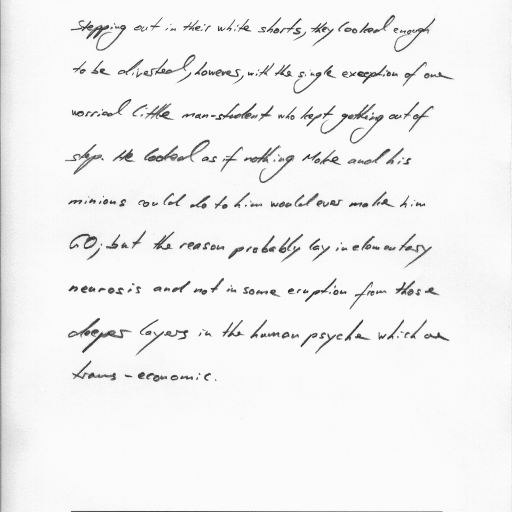 Stepping out in their white shorts, they looked enough
to be divested, however, with the single exception of one
worried little man-student who kept getting out of
step. He looked as if nothing Mobe and his
minions could do to him would ever make him
GO; but the reason probably lay in elementary
neurosis and not in some eruption from those
deeper layers in the human psyche which are
trans-economic.